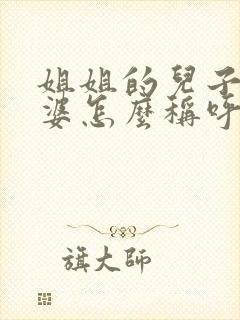 姐姐的兒子
婆怎麼稱呼
旗大師